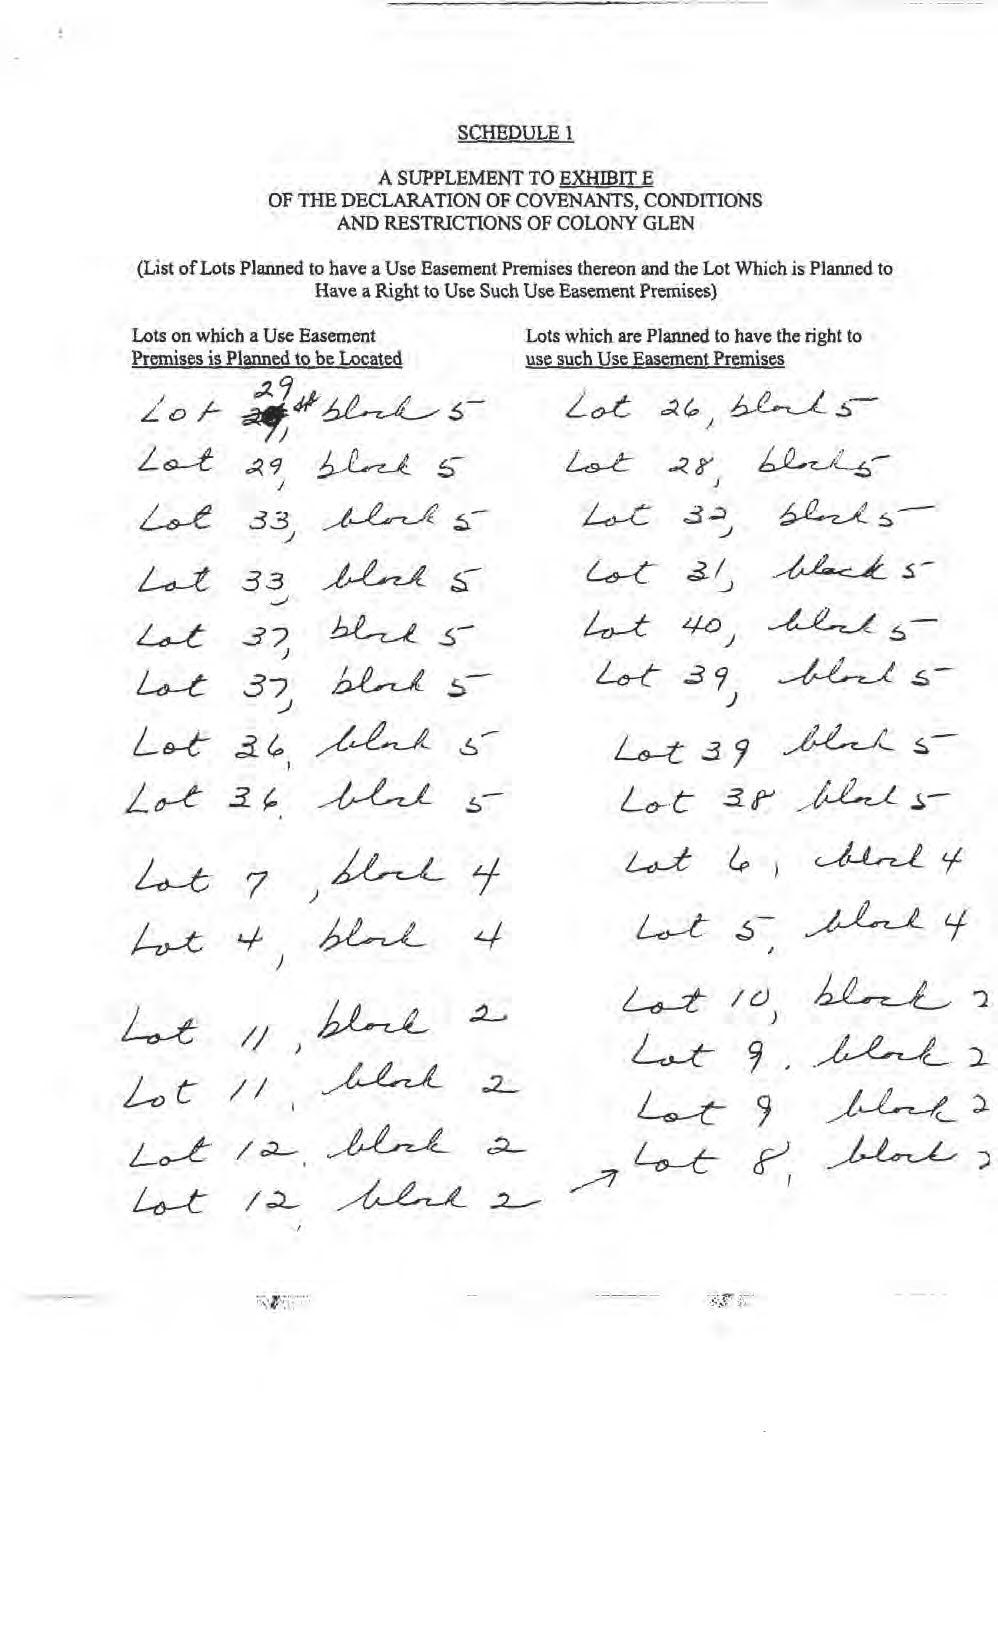 SCHEDULE 1
A SUPPLEMENT TO EXHIBIT E
OF THE DECLARATION OF COVENANTS, CONDITIONS
AND RESTRICTIONS OF COLONY GLEN
(List of Lots Planned to have a Use Easement Premises thereon and the Lot Which is Planned to
Have a Right to Use Such Use Easement Premises)
Lots on which a Use Easement Lots which are Planned to have the right to
Premises is Planned to be Located use such Use Easement Premises
Lot 29, block 5 Lot 26, block 5
Lot 29, block 5 Lot 28, block 5
Lot 33, block 5 Lot 32, block 5
Lot 33, block 5 Lot 31, block 5
Lot 37, block 5 Lot 40, block 5
Lot 37, block 5 Lot 39, block 5
Lot 36, block 5 Lot 39 block 5
Lot 36, block 5 Lot 38 block 5
Lot 7, block 4 Lot 6, block 4
Lot 4, block 4 Lot 5, block 4
Lot 11, block 2 Lot 10, block 2
Lot 11, block 2 Lot 9, block 2
Lot 12, block 2 Lot 9 block 2
Lot 12, block 2 Lot 8, block 2